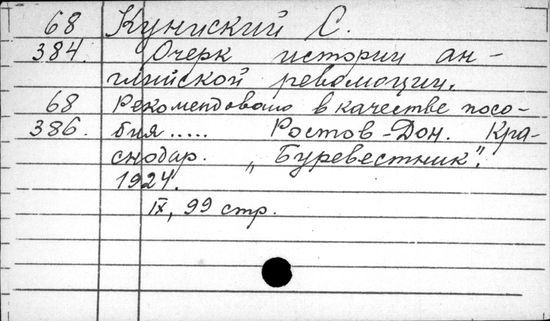 68 Куниский С.
384. Очерк истории ан-
глийской революции.
68 Рекомендовано в качестве посо-
386. бия..... Ростов-Дон. Кра-
снодар. „Буревестник".
1924.
IX, 99 стр.